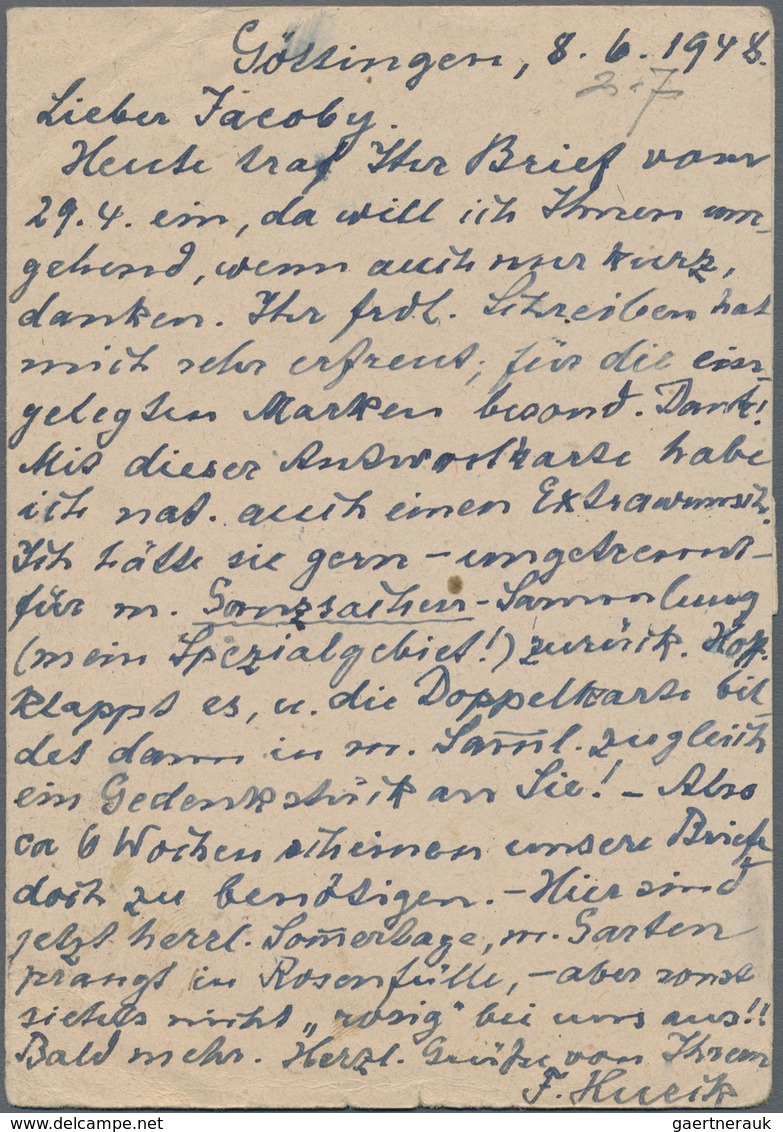 Göttingen, 8.6.1948.
2.7
Lieber Jacoby.
Heute traf Ihr Brief vom
29.4. ein, da will ich Ihnen um-
gehend, wenn auch nur kurz,
danken. Ihr frdl. Schreiben hat
mich sehr erfreut, für die ein-
gelegten Marken besond. Dank!
Mit dieser Antwortkarte habe
ich nat. auch einen Extrawunsch.
Ich hätte sie gern – ungetrennt –
für m. Ganzsachen-Sammlung
(mein Spezialgebiet!) zurück. Hoff.
klappt es, u. die Doppelkarte bil-
det dann in m. Samml. zugleich
ein Gedenkstück an Sie! – Also
ca 6 Wochen scheinen unsere Briefe
doch zu benötigen. – Hier sind
jetzt herrl. Som̅ertage, m. Garten
prangt in Rosenfülle, – aber sonst
sieht's nicht „rosig" bei uns aus!!
Bald mehr. Herzl. Grüße von Ihrem
F. Hueck
www.delcampe.net
gaertnerauk